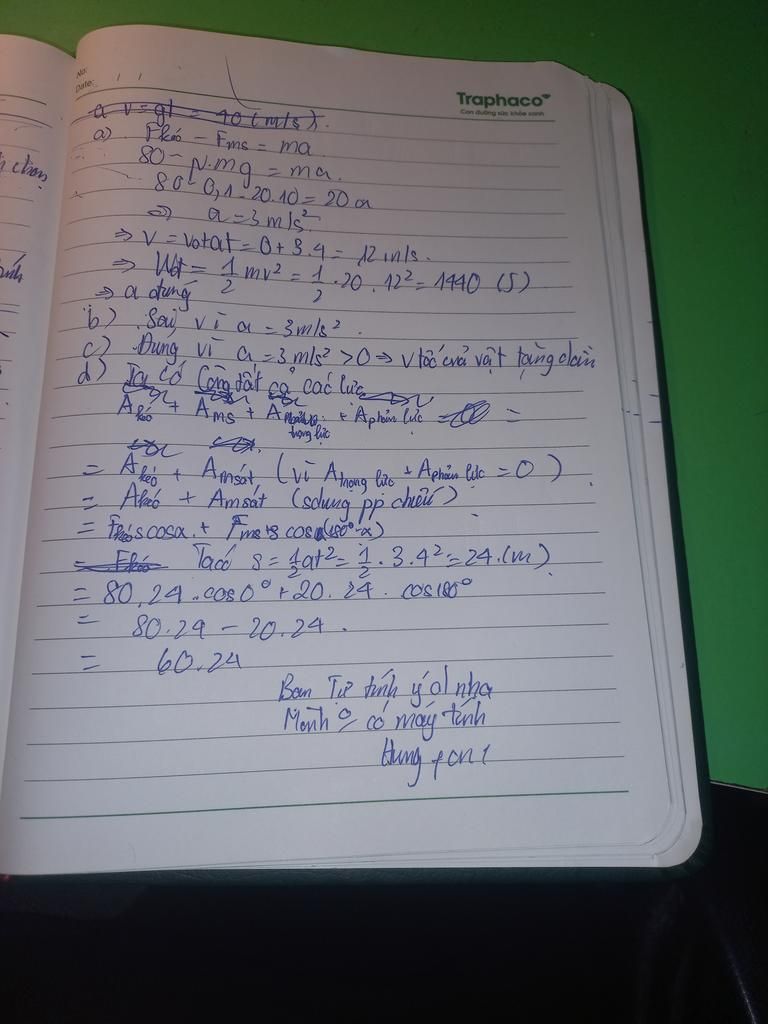 No:
Date: / /
Traphaco
Con đường sức khỏe xanh
a v = gt = 40 (m/s).
a) Fkéo - Fms = ma
80 - N.mg = ma.
80 - 0,1 . 20.10 = 20 a
=> a = 3 m/s²
=> v = vo+at = 0 + 3.4 = 12 m/s.
=> Wđ = 1/2 mv² = 1/2 . 20 . 12² = 1440 (J)
=> a đúng
b) Sai, vì a = 3m/s².
c) Đúng vì a = 3 m/s² > 0 => v tốc của vật tăng dần
d) Ta có Công tất cả các lực
Akéo + Ams + A trọng lực + Aphản lực =
= Akéo + Amsát (vì Atrọng lực + Aphản lực = 0)
= Akéo + Amsát (sdụng pp chiếu)
= Fkéo s cosα + Fms s cos(180°-α)
= Fkéo Ta có s = 1/2 at² = 1/2 . 3 . 4² = 24 (m)
= 80.24 . cos0° + 20 . 24 . cos180°
= 80.24 - 20.24.
= 60.24
Bạn Tự tính ý d nha
Mình có máy tính